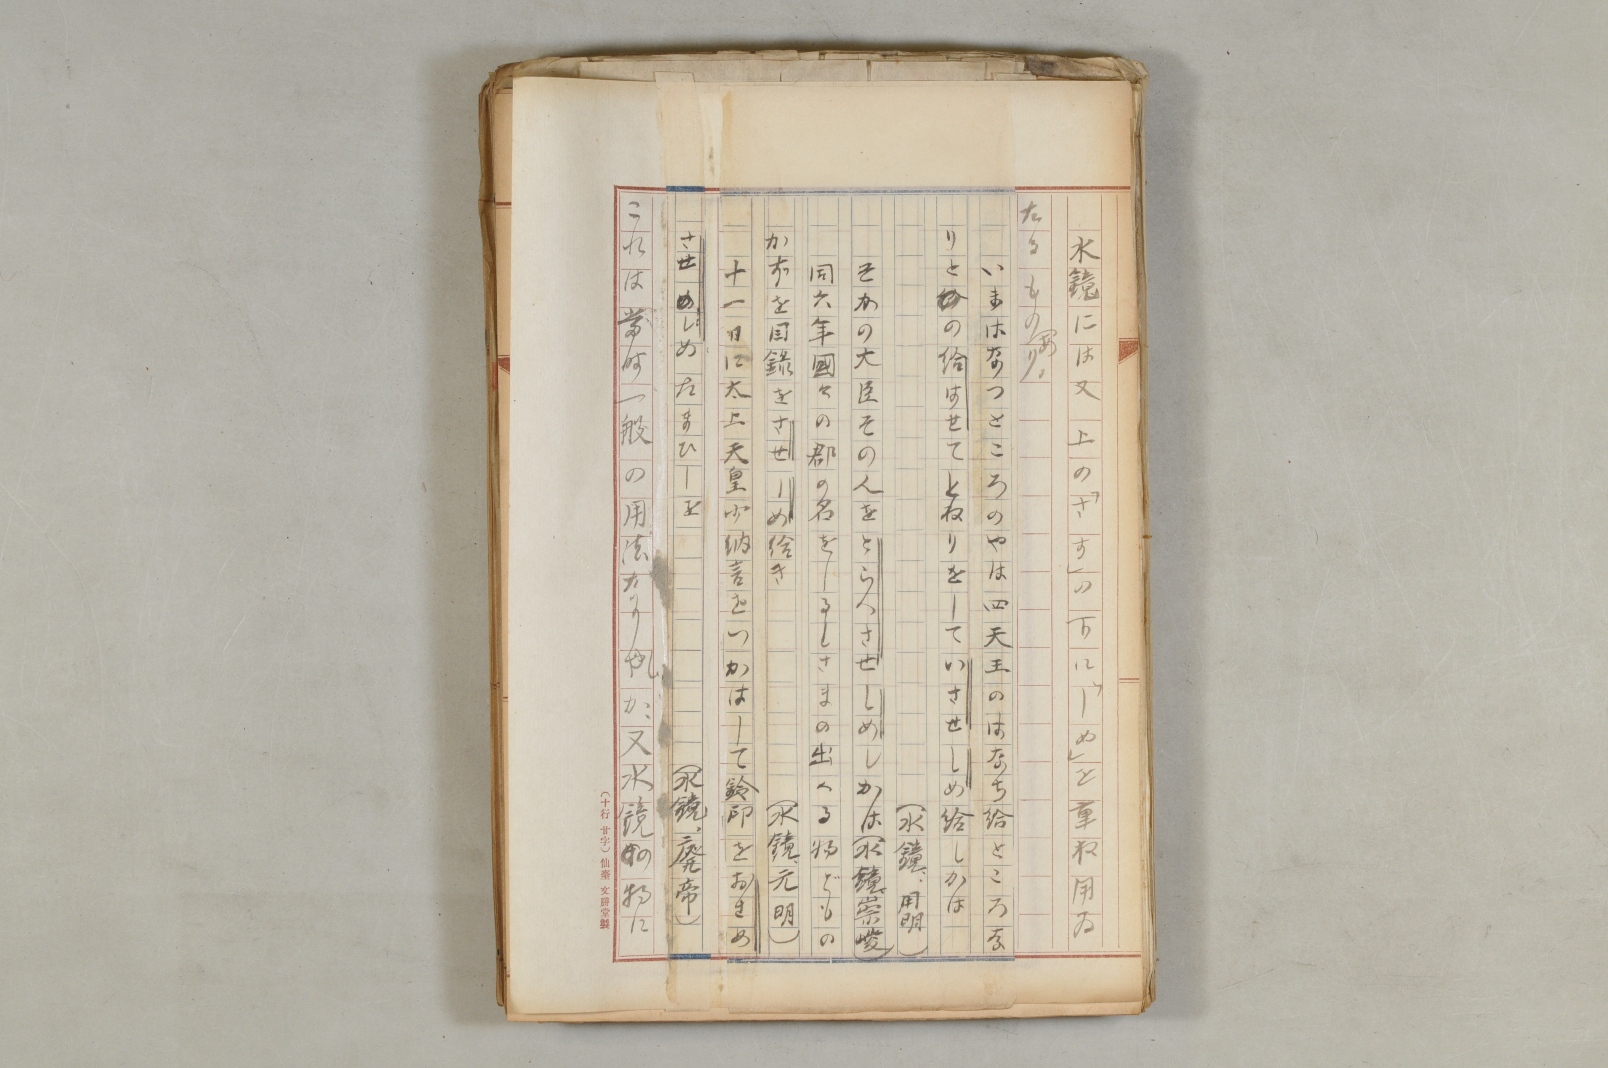 水鏡には又上の「さす」の下に「しめ」を重ね用ゐ
たるもの(あり)。
いまはなつところのやは四天王のはなち給ところな
りとの給はせてとねりをしていさせしめ給しかは
(水鏡、用明)
そかの大臣その人をとらへさせしめしかは(水鏡、崇峻)
同六年國々の郡の名をしるしさまの出くる物どもの
かずを目録をさせしめ給き(水鏡、元明)
十一日に太上天皇少納言をつかはして鈴印をおさめ
させしめたまひしを(水鏡、廢帝)
これは當時一般の用法なりしか、又水鏡の物に
(十行廿字)仙臺文勝堂製